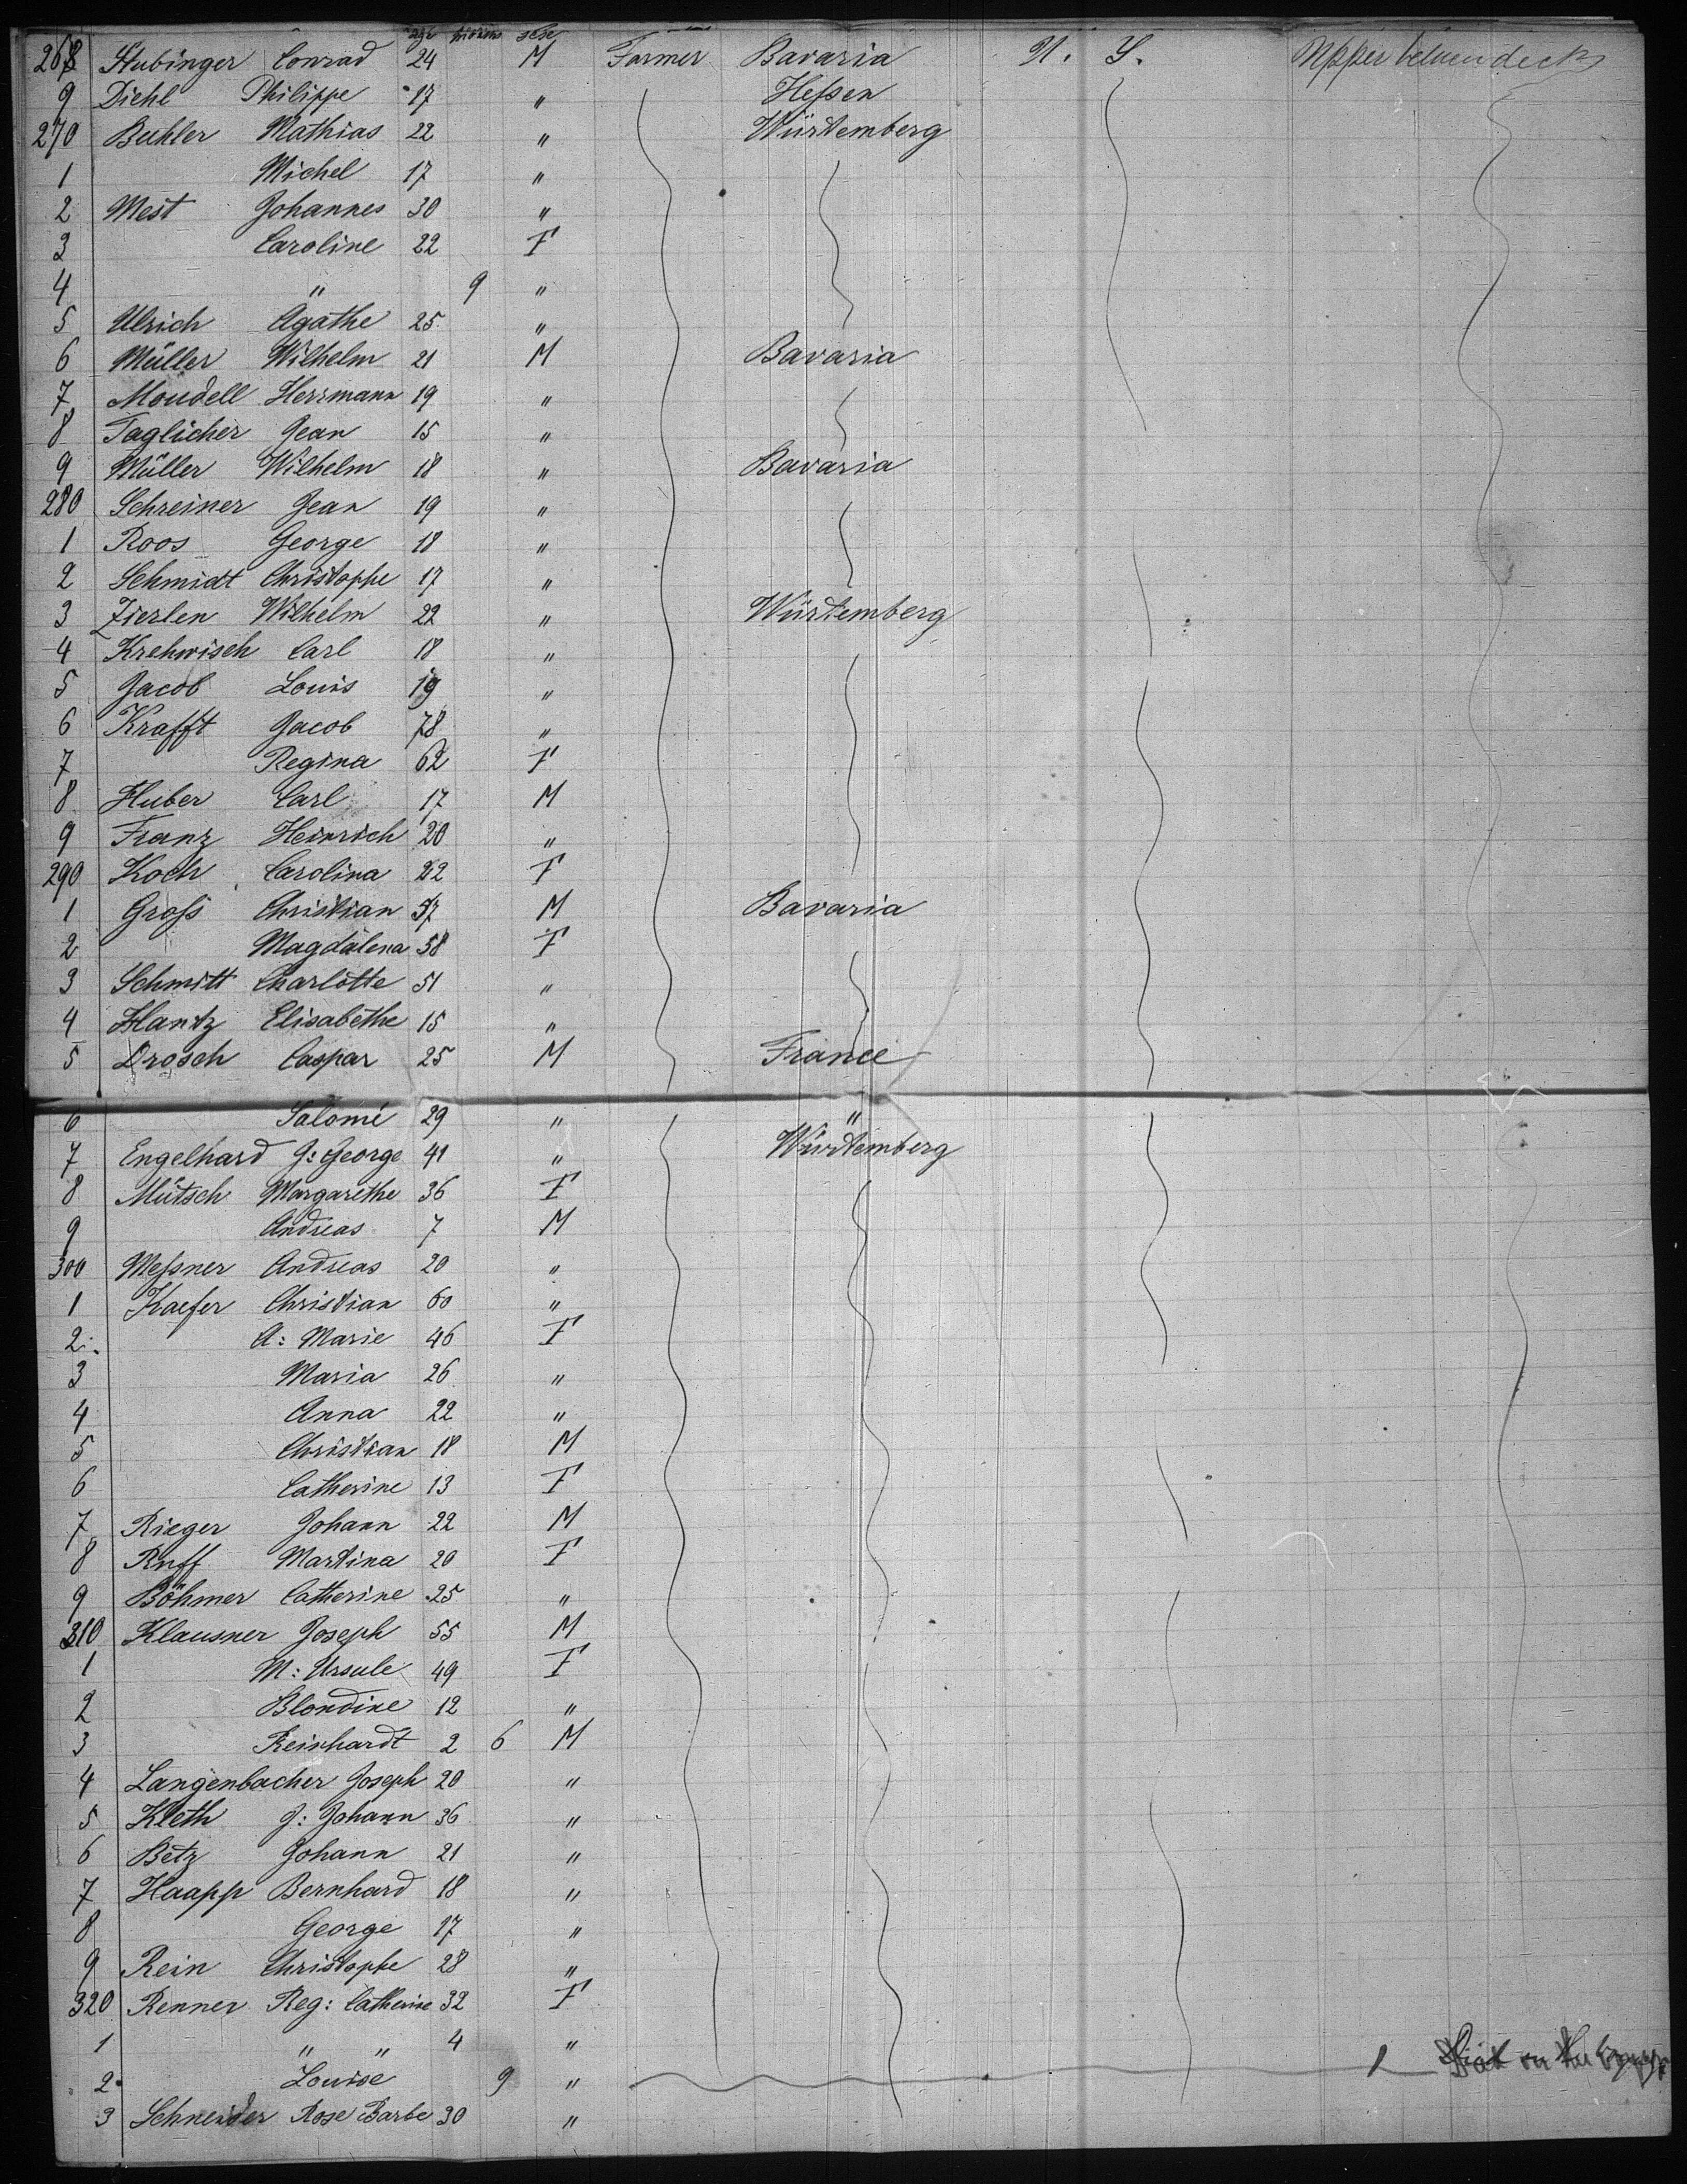 age months sex
268 Stubinger Conrad 24 M Farmer Bavaria N. Y. Upper between decks
9 Diehl Philippe 17 " Heßen
270 Buhler Mathias 22 " Würtemberg
1 Michel 17 "
2 Mest Johannes 30 "
3 Caroline 22 F
4 " 9 "
5 Ulrich Agathe 25 "
6 Müller Wilhelm 21 M Bavaria
7 Moudell Herrmann 19 "
8 Taglicher Jean 15 "
9 Müller Wilhelm 18 " Bavaria
280 Schreiner Jean 19 "
1 Roos George 18 "
2 Schmidt Christophe 17 "
3 Zierlen Wilhelm 22 " Würtemberg
4 Krehwisch Carl 18 "
5 Jacob Louis 19 "
6 Krafft Jacob 78 "
7 Regina 62 F
8 Huber Carl 17 M
9 Franz Heinrich 20 "
290 Koch Carolina 22 F
1 Groß Christian 57 M Bavaria
2 Magdalena 58 F
3 Schmitt Charlotte 51 "
4 Hantz Elisabethe 15 "
5 Drosch Caspar 25 M France
6 Salomé 29 " "
7 Engelhard J: George 41 " Würtemberg
8 Mütsch Margarethe 36 F
9 Andreas 7 M
300 Meßner Andreas 20 "
1 Kaefer Christian 60 "
2 A: Marie 46 F
3 Maria 26 "
4 Anna 22 "
5 Christian 18 M
6 Catherine 13 F
7 Rieger Johann 22 M
8 Ruff Martina 20 F
9 Böhmer Catherine 25 "
310 Klausner Joseph 55 M
1 M: Ursule 49 F
2 Blondine 12 "
3 Reinhardt 2 6 M
4 Langenbacher Joseph 20 "
5 Kleth J: Johann 36 "
6 Betz Johann 21 "
7 Haapp Bernhard 18 "
8 George 17 "
9 Rein Christophe 28 "
320 Renner Reg: Catherine 32 F
1 " " 4 "
2 Louise 9 " 1
3 Schneider Rose Barbe 30 "